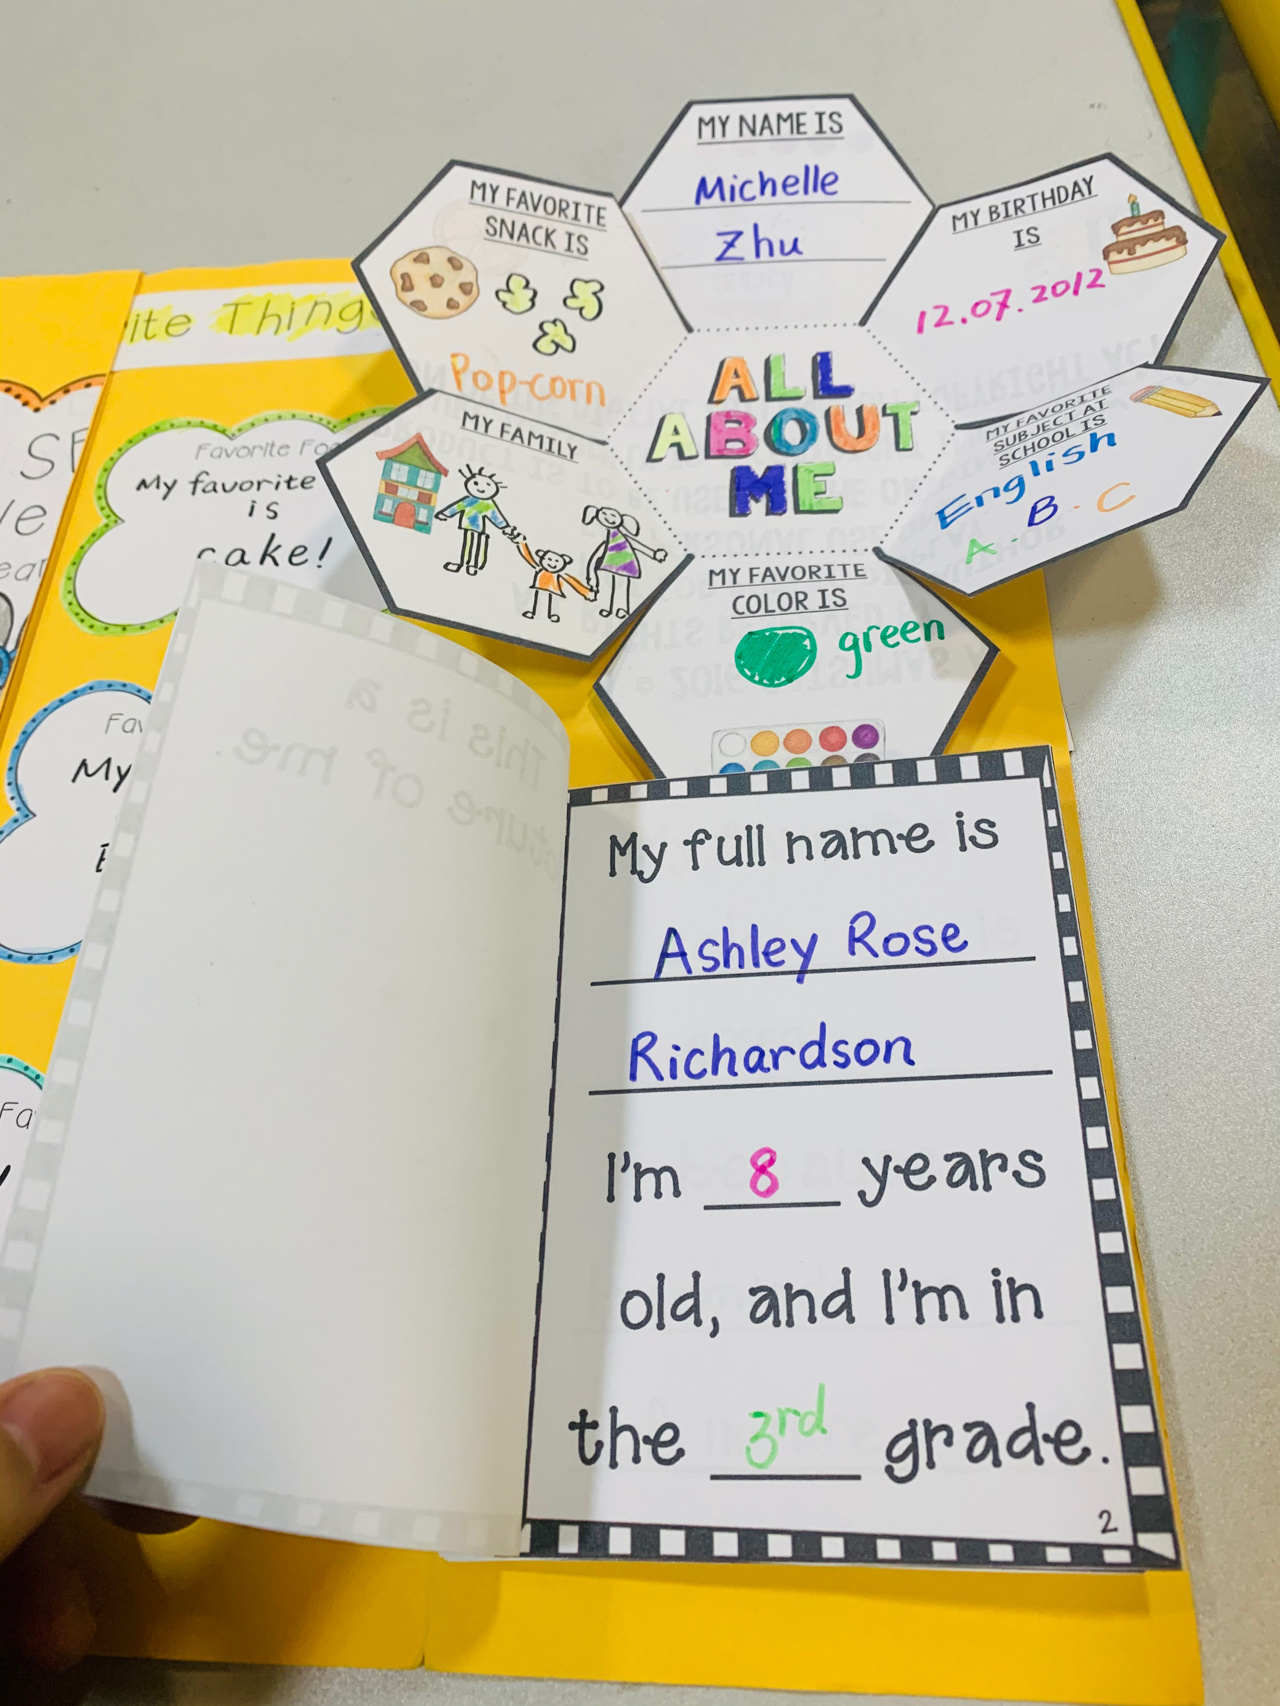 MY NAME IS
Michelle
Zhu
MY FAVORITE
SNACK IS
Pop-corn
MY BIRTHDAY
IS
12.07.2012
MY FAMILY
ALL
ABOUT
ME
MY FAVORITE
SUBJECT AT
SCHOOL IS
English
A · B · C
MY FAVORITE
COLOR IS
green
ite Things
Favorite Fo
My favorite
is
cake!
Fav
My
Fa
This is a
ture of me
My full name is
Ashley Rose
Richardson
I'm 8 years
old, and I'm in
the 3rd grade.
2